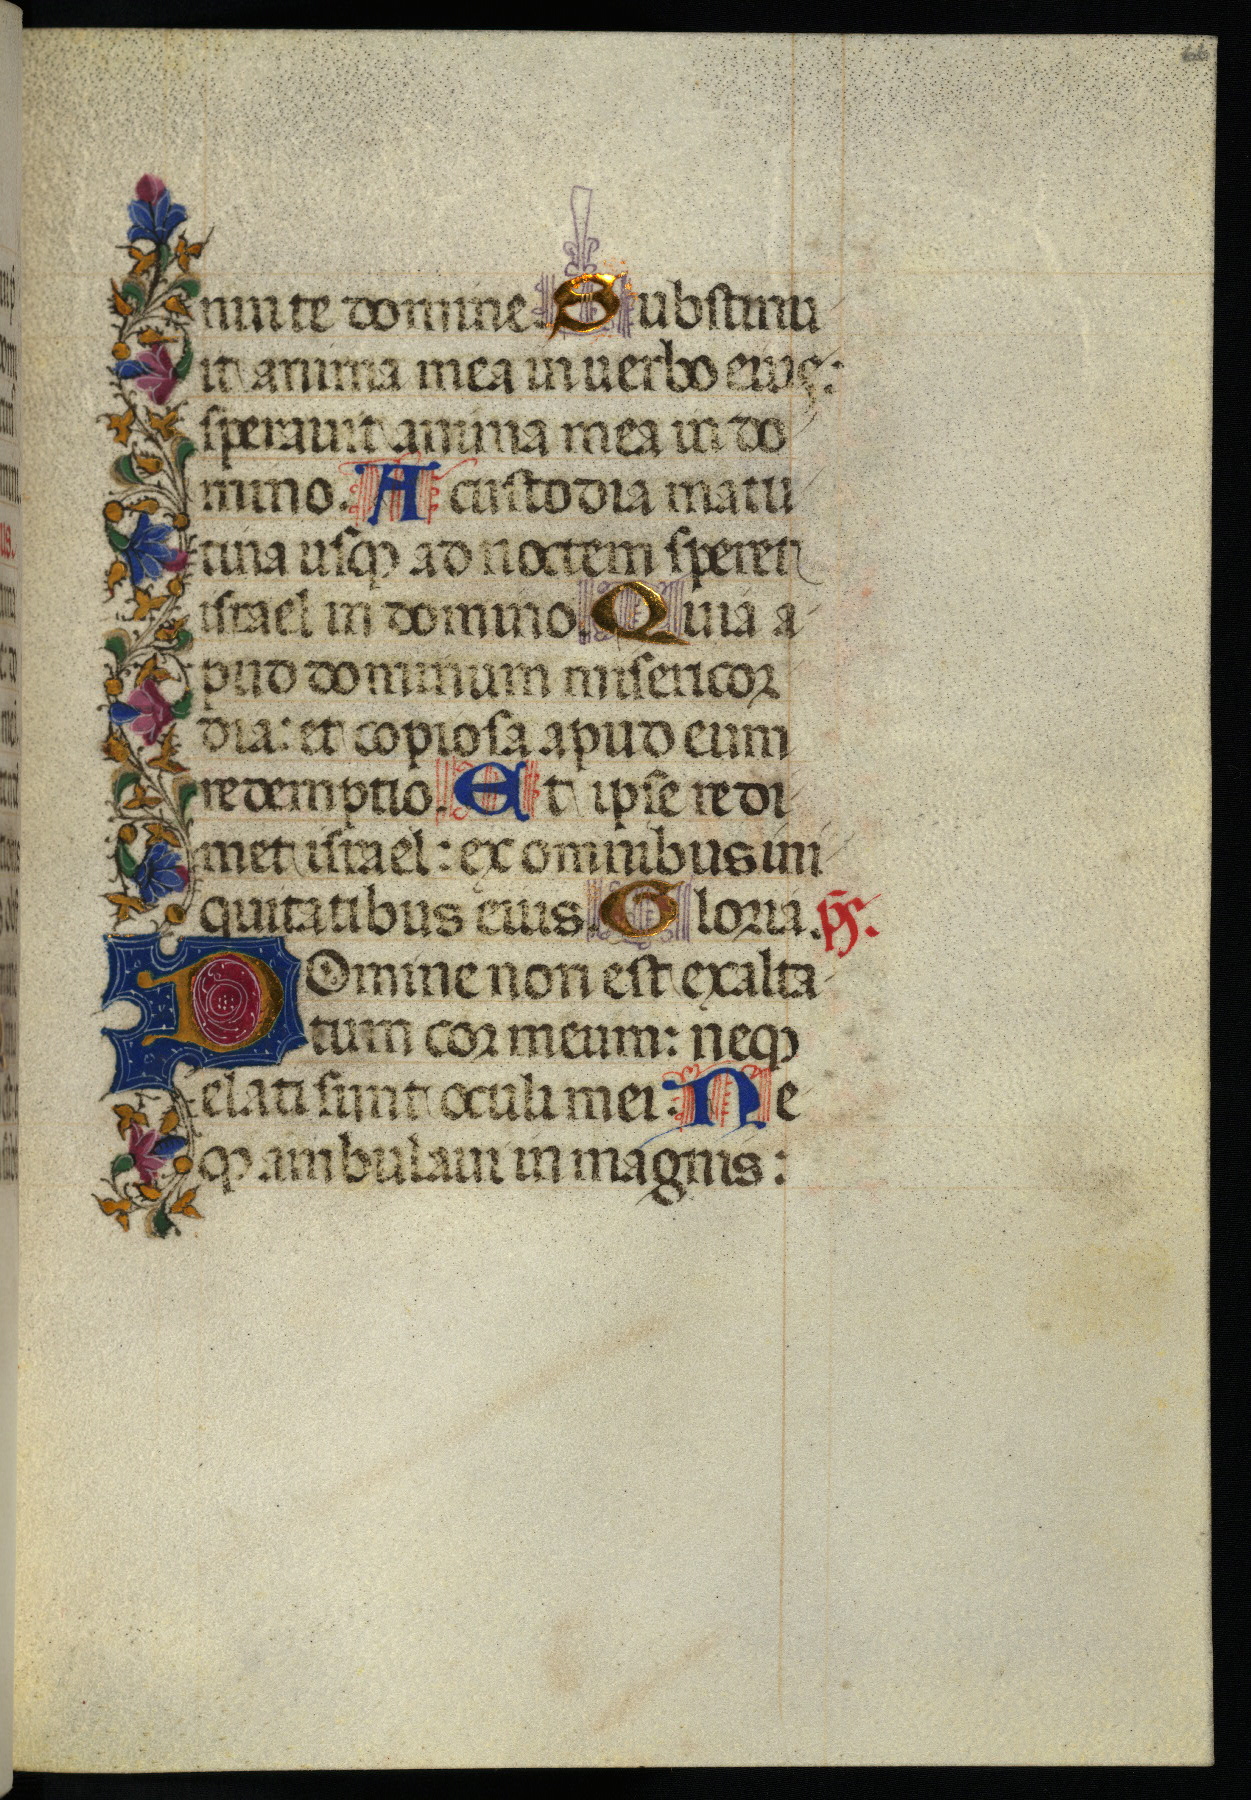 66
nui te domine. Substinu
it anima mea in uerbo eius:
sperauit anima mea in do
mino. A custodia matu
tina usqꝫ ad noctem speret
israel in domino. Quia a
pud dominum misericor
dia: et copiosa apud eum
redemptio. Et ipse redi
met israel: ex omnibus ini
quitatibus eius. Gloria. p̄s.
Domine non est exalta
tum cor meum: neqꝫ
elati sunt oculi mei. Ne
qꝫ ambulaui in magnis: